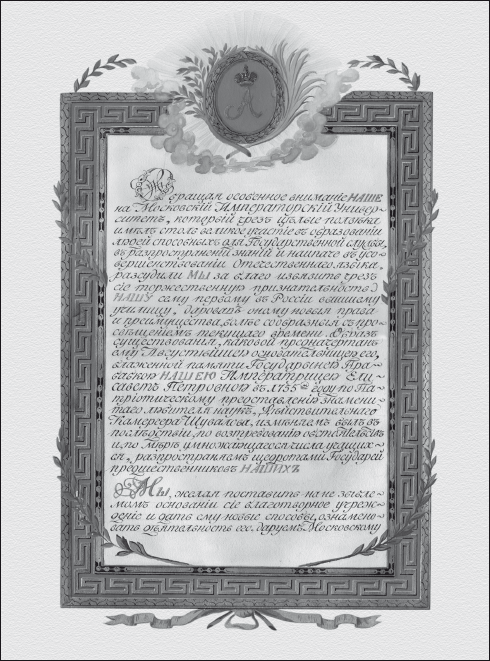 Обращая особенное вниманіе НАШЕ
на Московскій Императорскій Универ-
ситетъ, который чрезъ цѣлые полвѣка
имѣлъ столь великое участіе въ образованіи
людей способныхъ для Государственной службы,
въ распространеніи знаній и наипаче въ усо-
вершенствованіи Отечественнаго языка,
разсудили МЫ за благо изъявить чрезъ
сіе торжественную признательность
НАШУ сему первому въ Россіи вышнему
училищу, даровавъ оному новыя права
и преимущества, болѣе сообразныя съ про-
свѣщеніемъ текущаго времени. Образъ
существованія, каковой предначертанъ
ему Августѣйшею основательницею его,
блаженной памяти Государынею Пра-
бабкою НАШЕЮ Императрицею Ели-
саветъ Петровною въ 1755мъ году по Па-
тріотическому представленію знамени-
таго любителя наукъ, Дѣйствительнаго
Камергера Шувалова, измѣняемъ былъ въ
послѣдствіи, по востребованію обстоятельствъ
и по мѣрѣ умножающагося числа учащих-
ся, распространяемъ щедротами Государей
предшественниковъ НАШИХЪ
МЫ, желая поставить на не зыбле-
момъ основаніи сіе благотворное учреж-
деніе и дать ему новые способы ознамено-
вать дѣятельность его, даруемъ Московскому